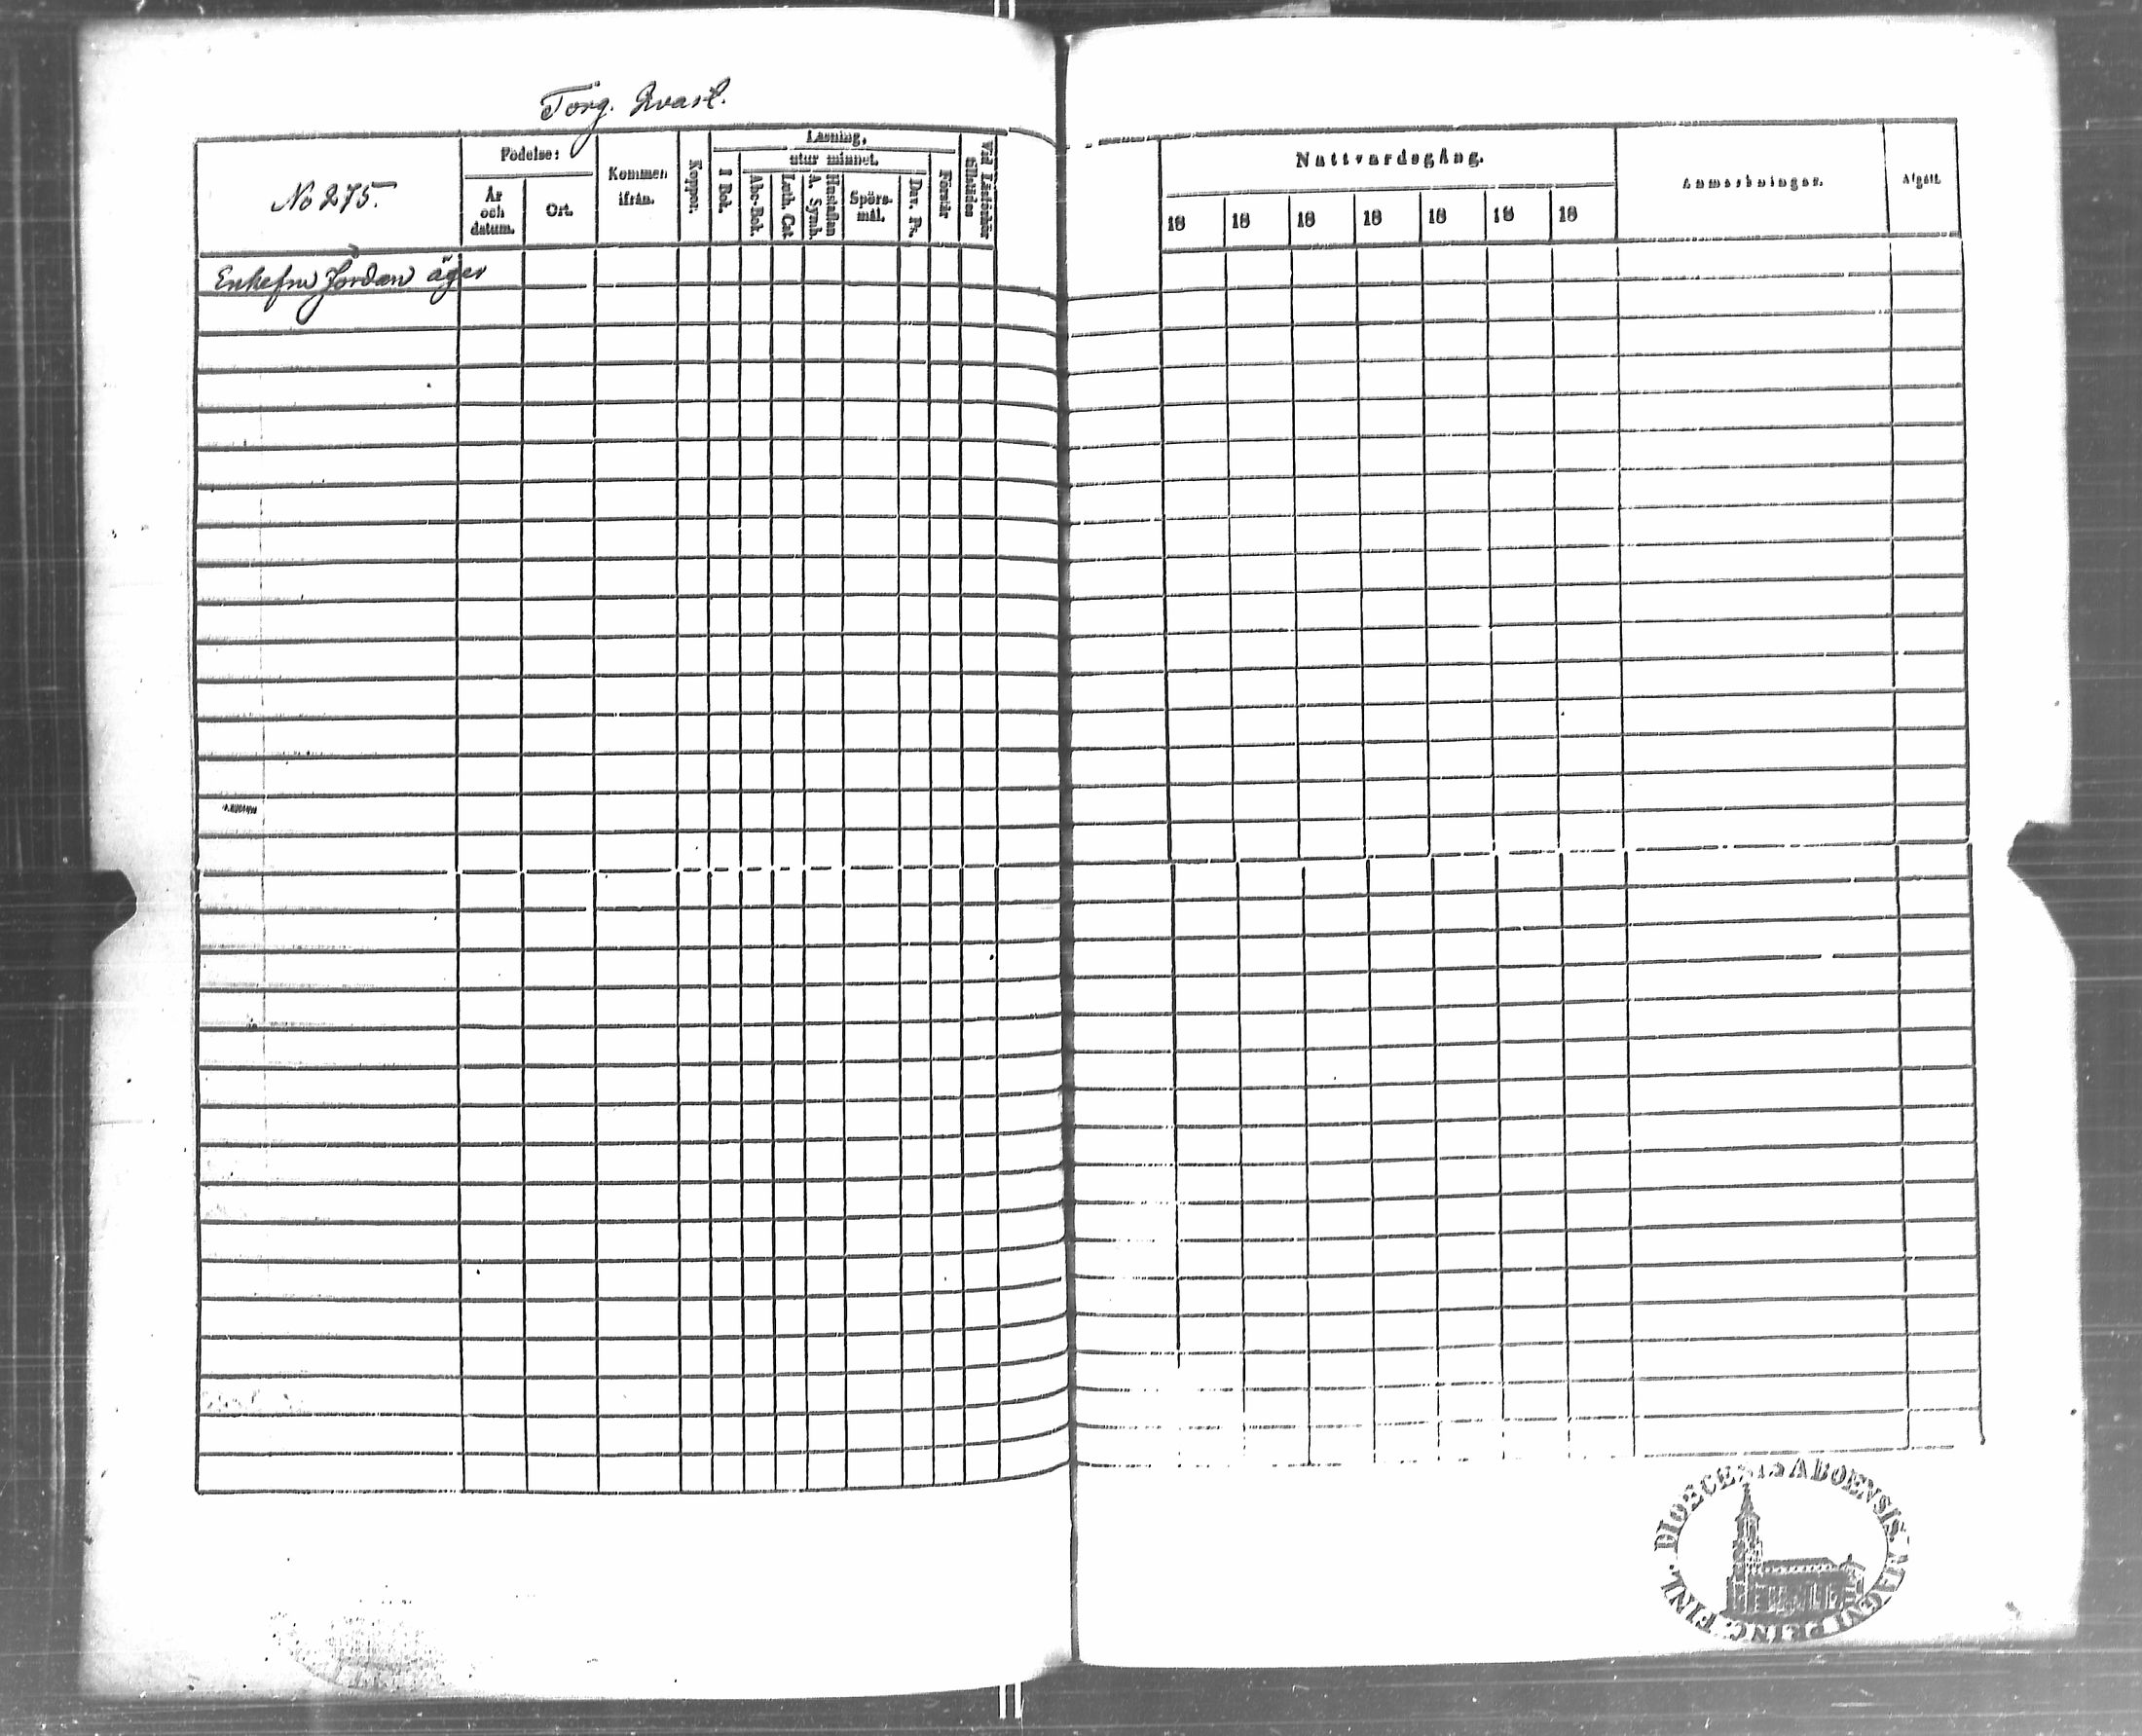 Torg. Qvart.
No 275.
Födelse:
År
och
datum.
Ort.
Kommen
ifrån.
Koppor.
Läsning,
utur minnet.
I Bok.
Abc-Bok.
Luth. Cat.
Hustaflan
A. Symb.
Spörs-
mål.
Dav. Ps.
Förstår
Vid Läsförhör
tillstädes
Enkefru Jordan äger
Nattvardsgång.
18 18 18 18 18 18 18
Anmärkningar.
Afgått.
DIOECESIS ABOENSIS. MAGNI PRINC. FINL.